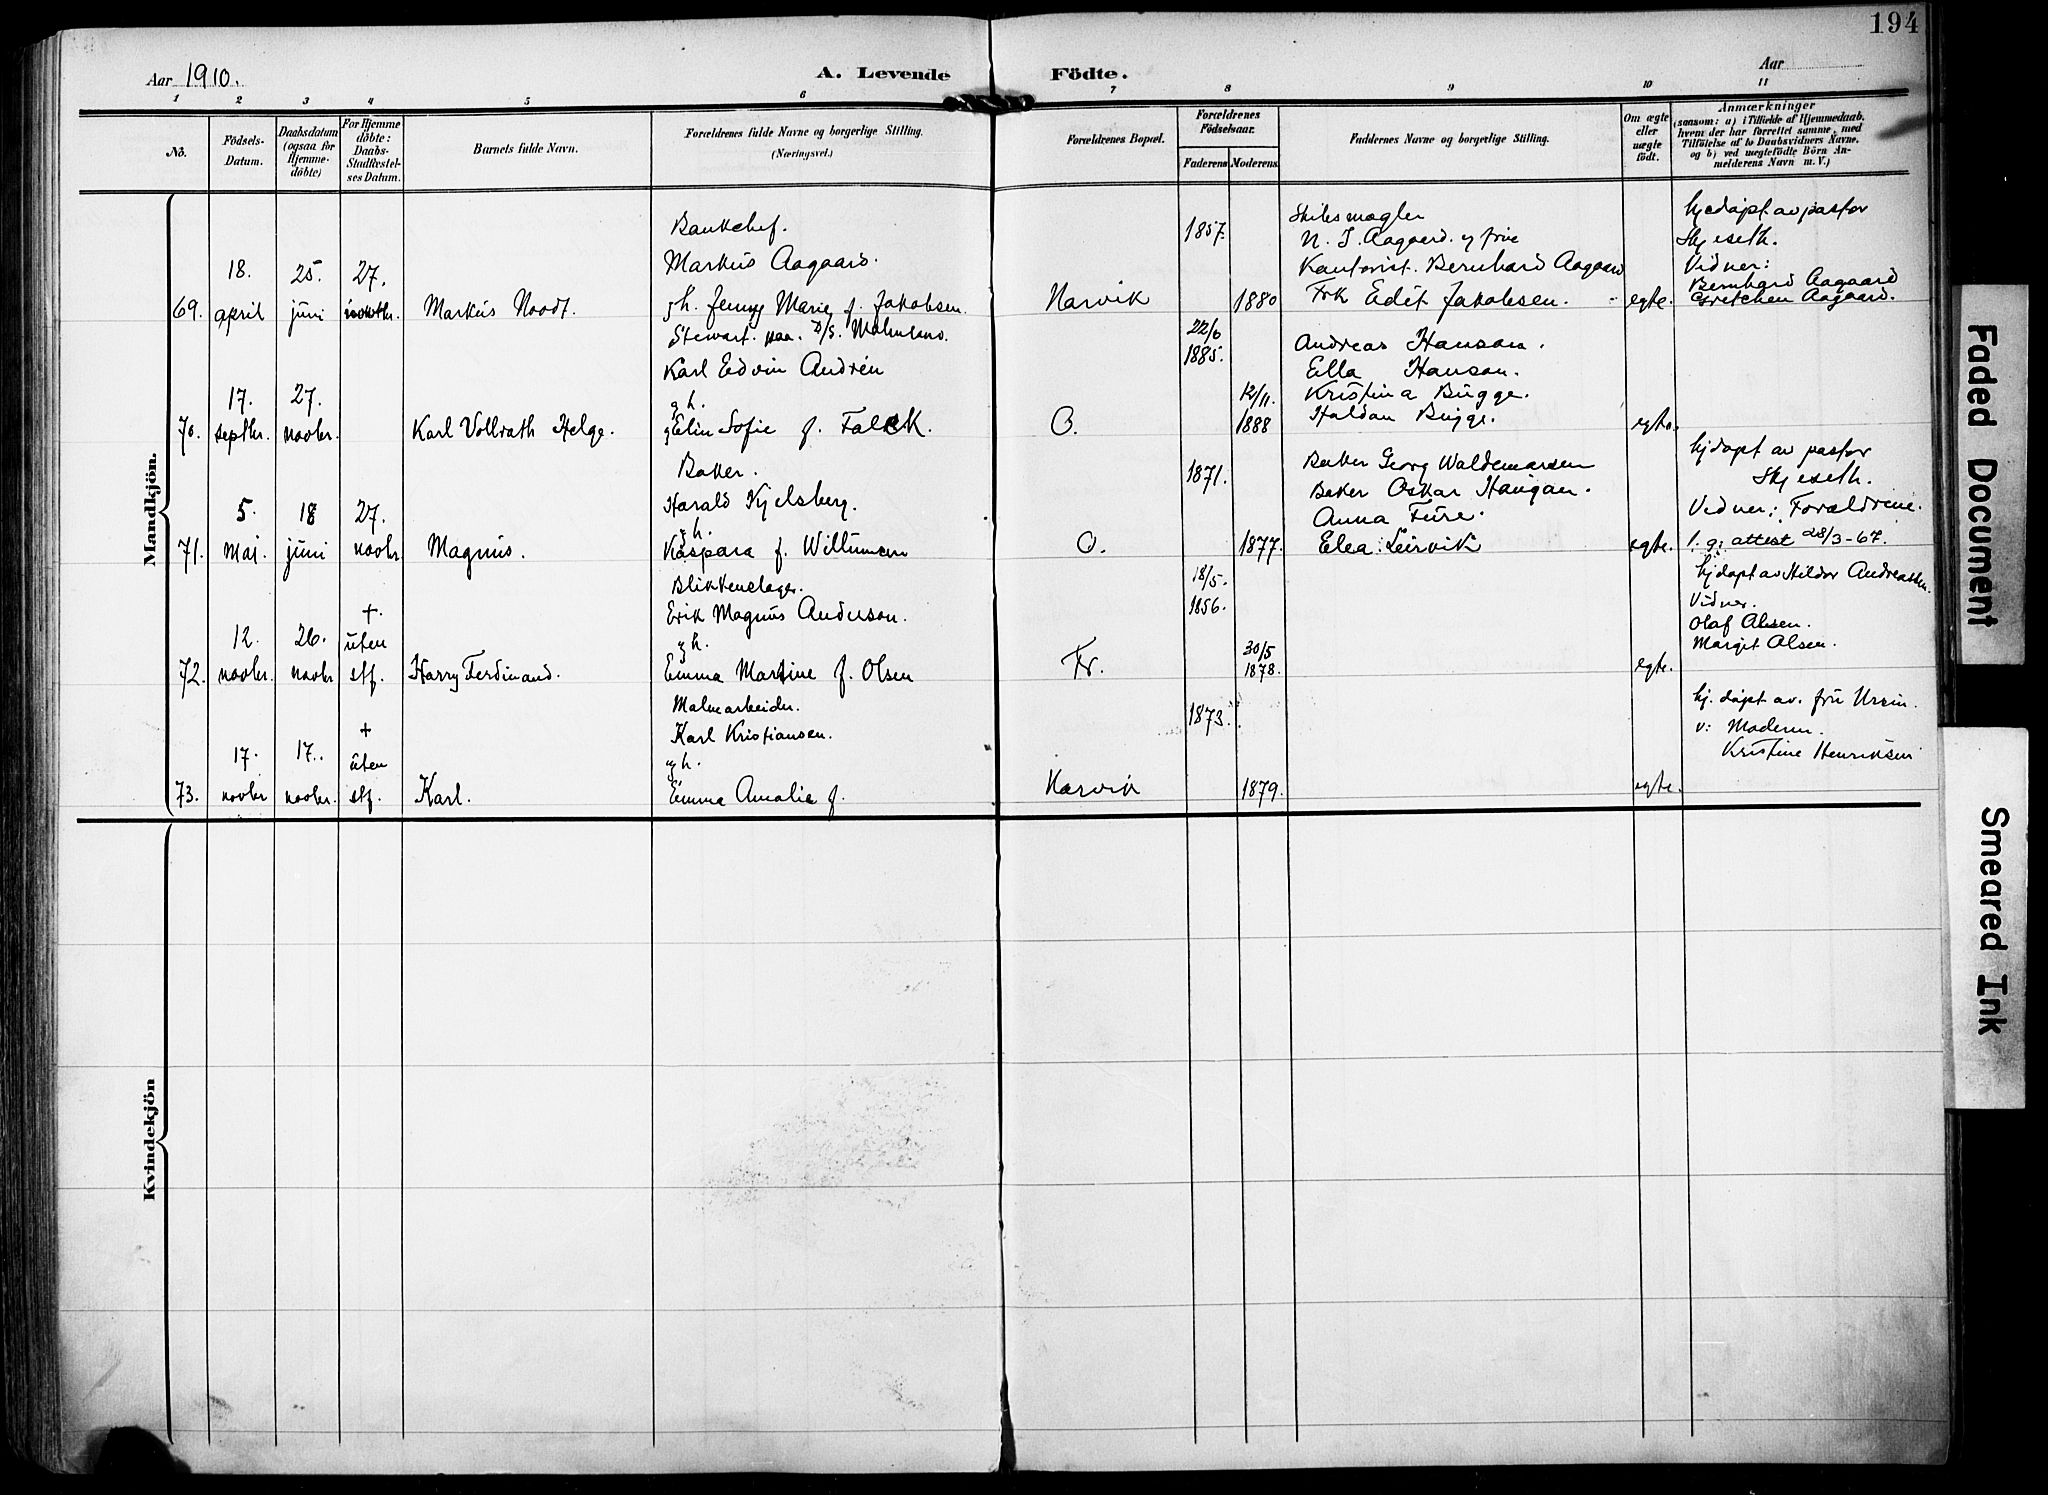 194
Aar 1910.
A. Levende Födte.
Aar
1 2 3 4 5 6 7 8 9 10 11
No.
Födsels-Datum.
Daabsdatum (ogsaa for Hjemme-döbte)
For Hjemme döbte: Daabs-Stadfæstel-ses Datum.
Barnets fulde Navn.
Forældrenes fulde Navne og borgerlige Stilling.
(Næringsvei.)
Forældrenes Bopæl.
Forældrenes Födselsaar.
Faderens Moderens
Faddernes Navne og borgerlige Stilling.
Om ægte eller uægte födt.
Anmærkninger
(saasom: a) i Tilfælde af Hjemmedaab,
hvem der har forrettet samme, med
Tilföielse af to Daabsvidners Navne,
og b) ved uægtefödte Börn An-
melderens Navn m. V.)
Mandkjön.
Bankchef. 1857. Skibsmægler hjedøpt av pastor
N. S. Aagaard. og frue Skjeseth.
18. 25. 27. Markus Aagaard. Kontorist. Bernhard Aagaard Vidner:
Bernhard Aagaard
69. april juni Markus Noodt. gh. Jenny Marie f. Jakobsen. Narvik 1880 Frk Edit Jakobsen. egte. Gretchen Aagaard.
Stewart. paa. D/S. Malmland. 22/6 1885. Andreas Hanson.
Karl Edvin Andrén Ella Hanson.
17. 27. gh. 12/11. Kristina Bugge.
70. septbr. novbr. Karl Vollrath Helge. Elin Sofie f. Falck. O. 1888 Haldan Bugge. egte.
Baker. 1871. Baker Georg Waldemarsen hjdøpt av pastor
Harald Kjelsberg. Baker Oskar Haugan. Skjeseth.
5. 18 27. gh. Anna Fure. Vidner: Forældrene.
71. Mai juni novbr Magnus. Kaspara f. Willumsen O. 1877. Elea Leirvik egte. l. g. attest 28/3-67.
Blikkenslager. 18/5. hjdøpt av Hildor Andreassen.
+ Erik Magnus Anderson. 1856. Vidner.
Olaf Alsen.
12. 26. uten gh. 30/5 Margit Alsen.
72. novbr. novbr stf. Harry Ferdinand. Emma Martine f. Olsen Fr. 1878. egte.
Malmarbeider. 1873. hj. døpt av. fru Ursin.
+ Karl Kristiansen. v: Moderen.
17. 17. uten gh. Kristine Henriksen
73. novbr novbr. stf. Karl. Emma Amalie f. Narvik 1879. egte.
Kvindekjön
Faded Document
Smeared Ink